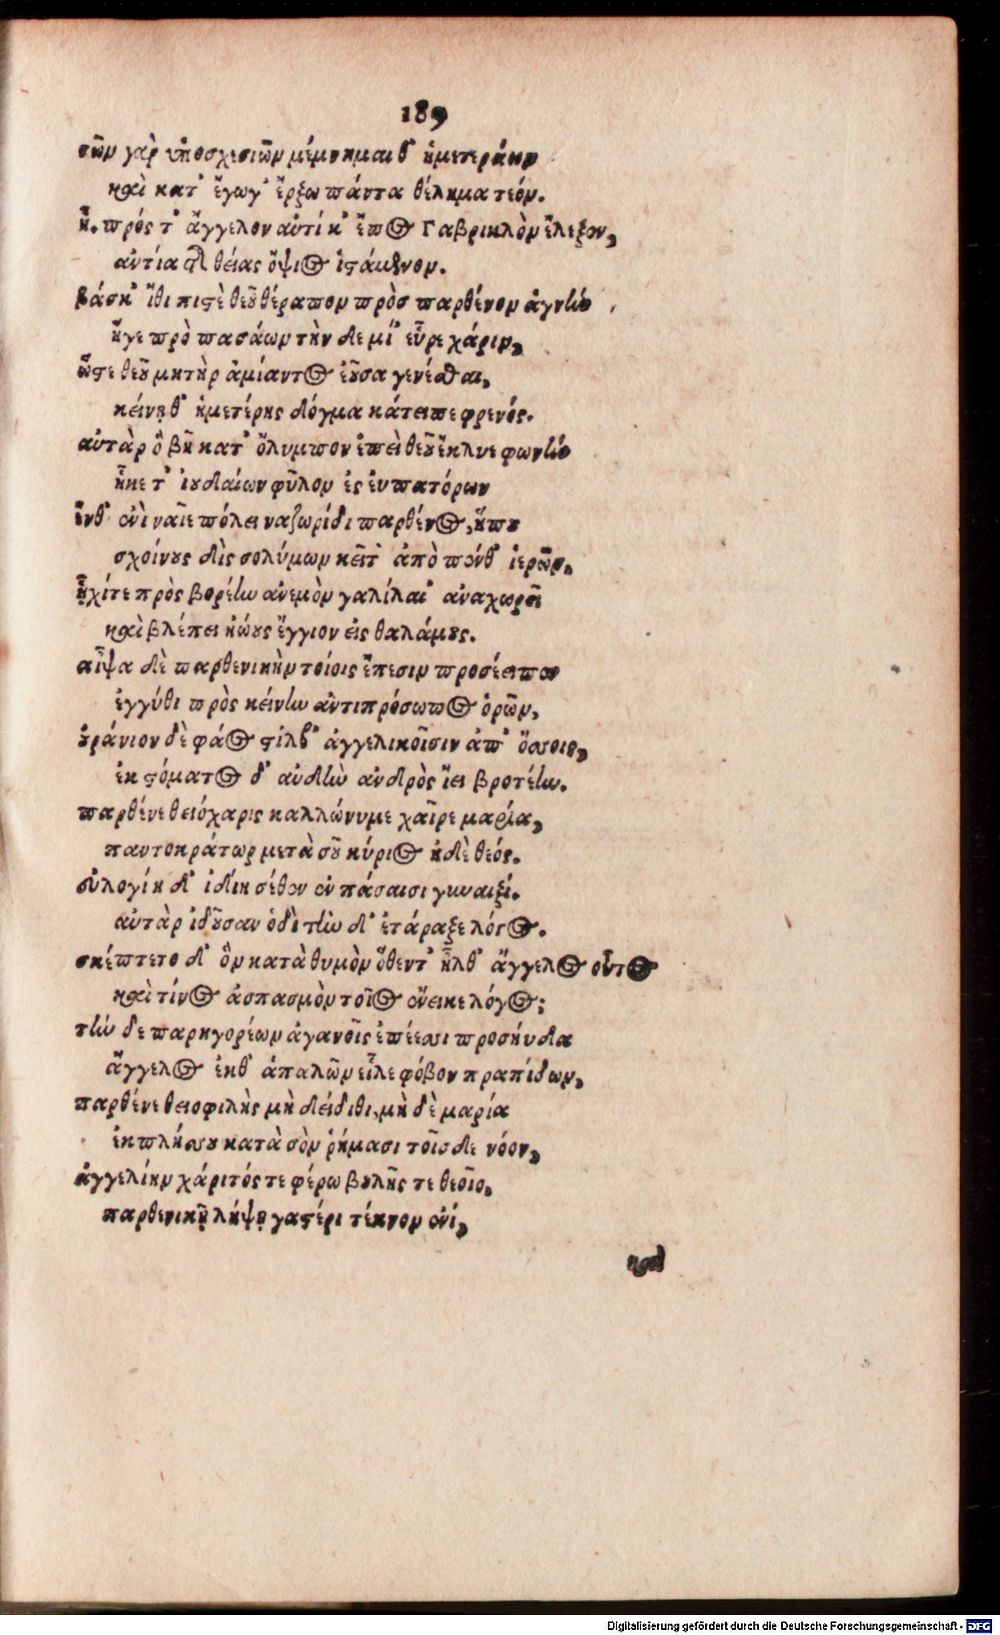 189
σῶν γὰρ ὑποσχεσιῶν μέμνημαι θ' ἡμετεράων
καὶ κατ' ἔγωγ' ἔρξω πάντα θέλημα τεόν.
ἦ. πρός τ' ἄγγελον αὐτίκ' ἔπος Γαβριηλὸν ἔλεξεν,
ἀντία τῆς θείας ὄψιος ἱστάμενον.
βάσκ' ἴθι πιστὲ θεοῦ θέραπον πρὸς παρθένον ἁγνὴν
ἥγε πρὸ πασάων τὴν δε μί' εὗρε χάριν,
ὥστε θεοῦ μητὴρ ἀμίαντος ἐοῦσα γενέσθαι,
κείνῃ θ' ἡμετέρης δόγμα κάτειπε φρενός.
αὐτὰρ ὃ βῆ κατ' ὄλυμπον ἐπεὶ θεοῦ ἔκλυε φωνὴν
ἧκε τ' ἰουδαίων φῦλον ἐς εὐπατόρων
ἔνθ' ἐνὶ ναῖε πόλει ναζωρίδι παρθένος, ἥπου
σχοίνους δὶς σολύμων κεῖτ' ἀπὸ πένθ' ἱερῶν,
ᾗχίτε πρὸς βορέην ἀνεμὸν γαλίλαι' ἀναχωρεῖ
καὶ βλέπει ἠώους ἔγγιον εἰς θαλάμους.
αἶψα δὲ παρθενικὴν τοίοις ἔπεσιν προσέειπεν
ἐγγύθι πρὸς κείνην ἀντιπρόσωπος ὁρῶν,
οὐράνιον δὲ φάος στίλβ' ἀγγελικοῖσιν ἀπ' ὄσσοις,
ἐκ στόματος δ' αὐδὴ ἀνδρὸς ἵει βροτέην.
παρθένε θειόχαρις καλλώνυμε χαῖρε μαρία,
παντοκράτωρ μετὰ σοῦ κύριος ἠδὲ θεός.
εὐλογίη δ' ἰδίη σέθεν ἐν πάσαισι γυναιξί.
αὐτὰρ ἰδοῦσαν ὁδὶ τὴν δ' ἐτάραξε λόγος.
σκέπτετο δ' ὃν κατὰ θυμὸν ὅθεντ' ἦλθ' ἄγγελος οὗτος
καὶ τίνος ἀσπασμὸν τοῖος ἔνεικε λόγος;
τὴν δε παρηγορέων ἀγανοῖς ἐπέεσσι προσηύδα
ἄγγελος ἐκθ' ἁπαλῶν εἷλε φόβον πραπίδων,
παρθένε θειοφιλὴς μὴ δείδιθι, μὴ δὲ μαρία
ἐκπλήσσου κατὰ σὸν ῥήμασι τοῖσδε νόον,
ἀγγελίην χάριτός τε φέρω βουλῆς τε θεοῖο,
παρθενικῇ λήψῃ γαστέρι τέκνον ἐνί,
καὶ